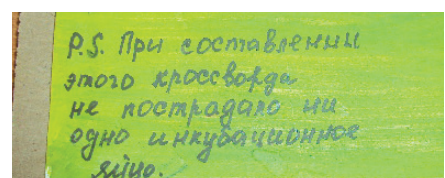 P.S. При составлении
этого кроссворда
не пострадало ни
одно инкубационное
яйцо.